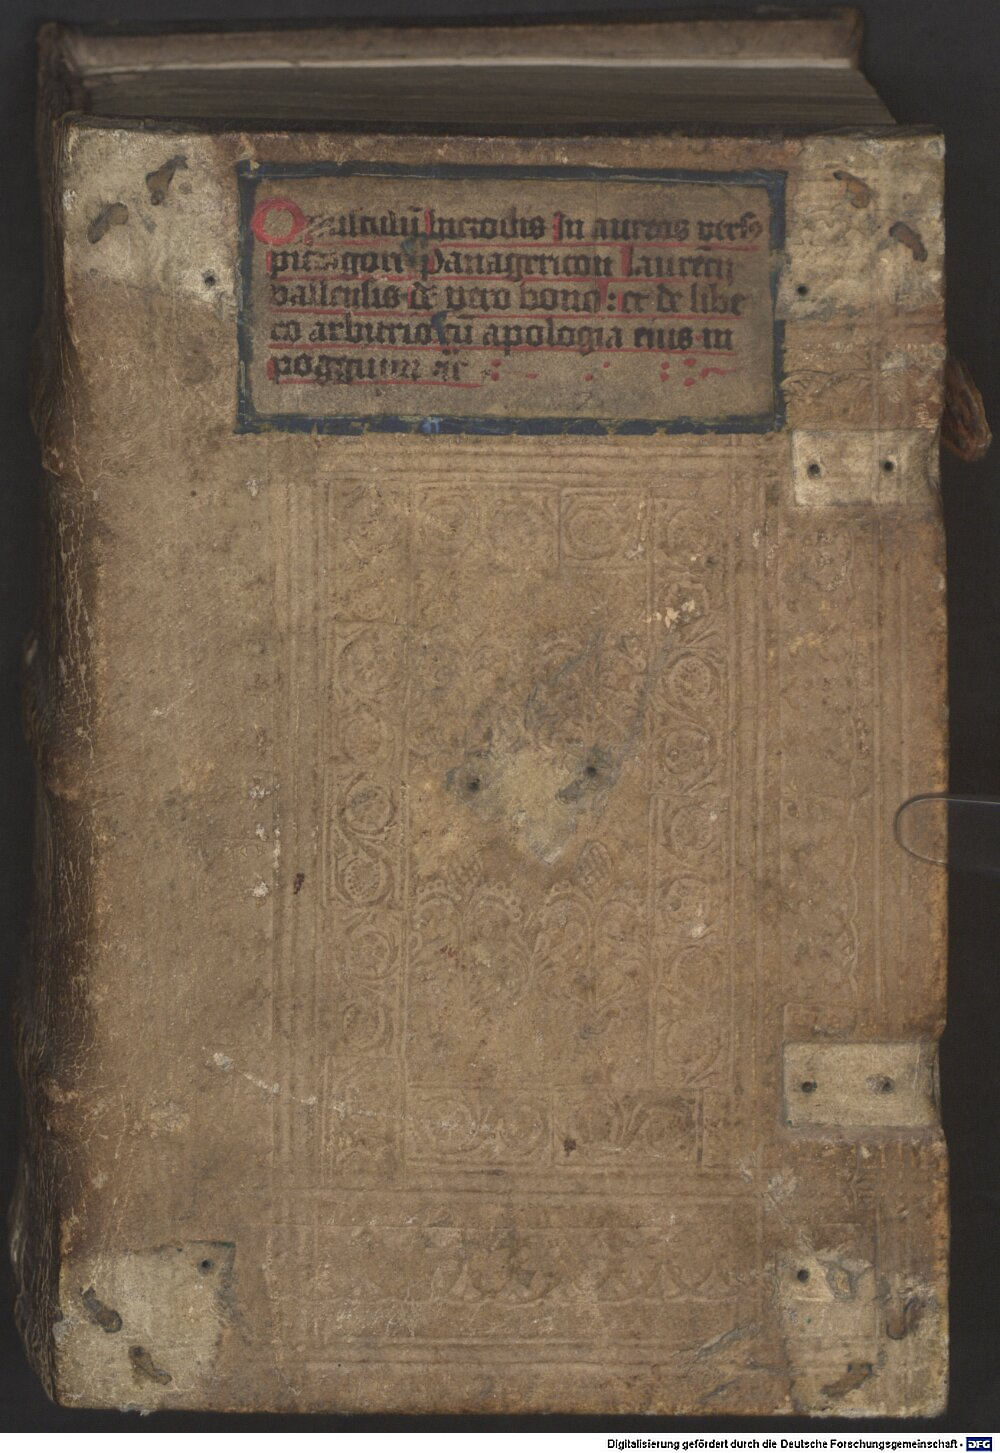 Opusculū hieroclis In aureos verso
pictagore Panagericon laurēcij
vallensis de vero bono : et de libe
ro arbitrio cū apologia eius in
poggium ⁊c̈
Digitalisierung gefördert durch die Deutsche Forschungsgemeinschaft - DFG